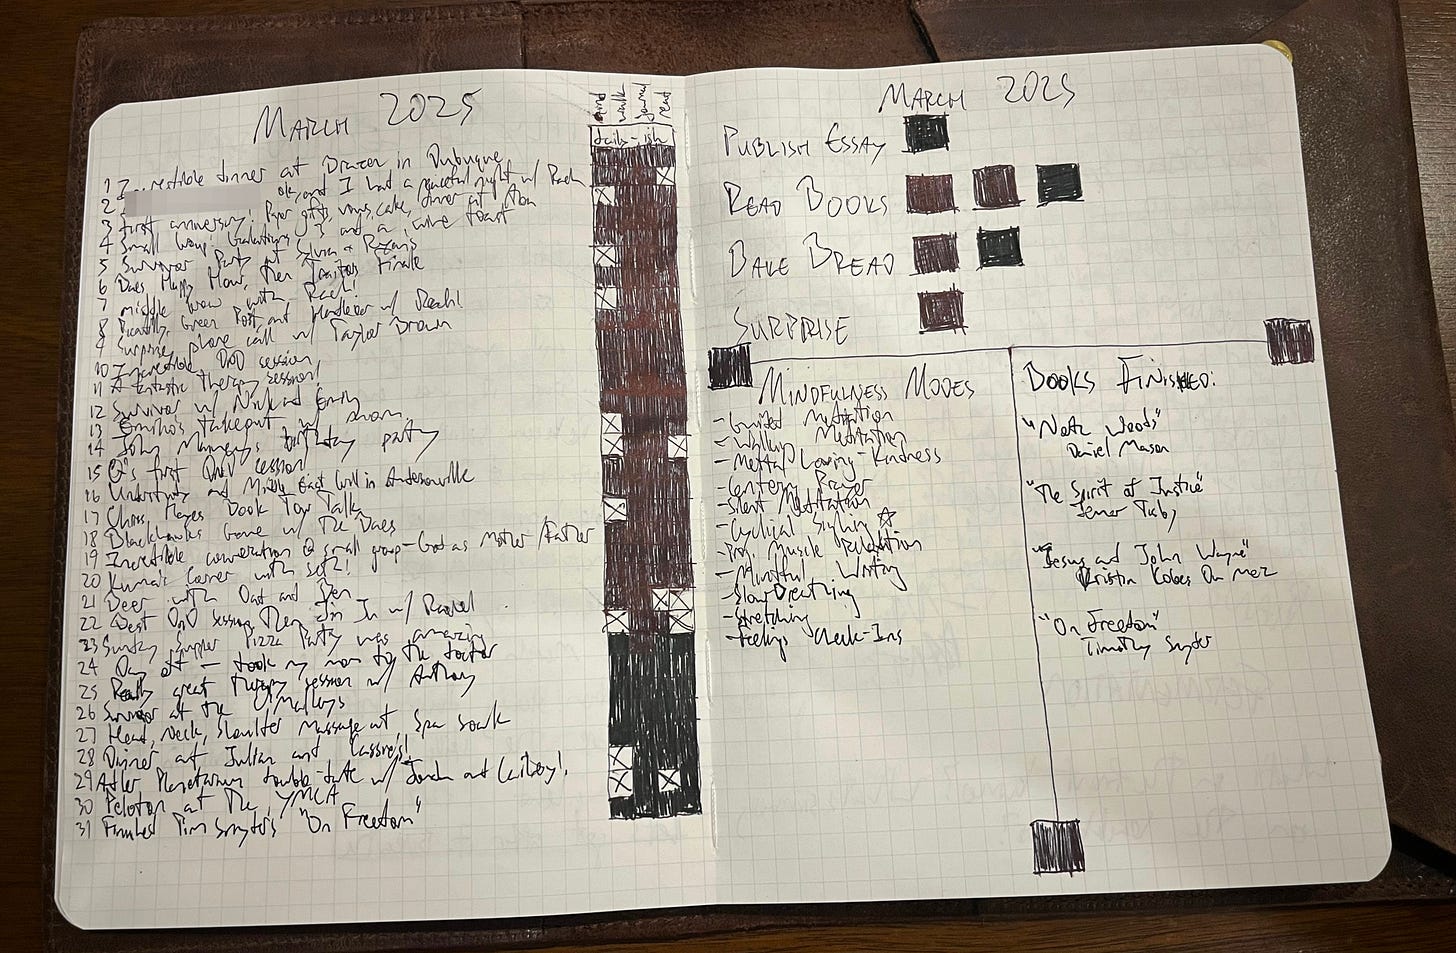 March 2025
mind
walk
journal
read
daily-ish
1 Incredible dinner at Brazen in Dubuque
2 ok, and I had a peaceful night w/ Rach
3 First anniversary! Paper gifts, vinyls, cake, dinner at
4 Small Group: Galatians 3 and a wine toast
5 Survivor Party at + Ryan's
6 Daes Happy Hour, then Traitors Finale
7 middle brow with Rach!
8 Piccadilly, Green Post, and w/ Rach!
9 Surprise phone call w/ Taylor Brown
10 Incredible DnD session
11 A fantastic therapy session!
12 Survivor w/ Nick and Emily
13 takeout w/
14 John birthday party
15 first DnD session!
16 and Middle East Grill in Andersonville
17 Chris Hayes Book Tour Talk
18 Blackhawks Game w/ The Daes
19 Incredible conversation @ small group - God as Mother/Father
20 Kuma's Corner with Seth!
21 Beer with and Ben
22 Best DnD session, then Jin Ju w/ Rachel
23 Sunday Supper Pizza Party was amazing
24 Day off - took my mom to the doctor
25 Really great therapy session w/ Anthony
26 Survivor at the O'Malleys
27 Head, neck, shoulder massage at Spa Soak
28 Dinner at Julian and
29 Adler Planetarium double-date w/ and
30 Peloton at the YMCA
31 Finished Tim Snyder's "On Freedom"
March 2025
Publish Essay
Read Books
Bake Bread
Surprise
Mindfulness Modes
- Guided Meditation
- Walking Meditation
- Mental Loving-Kindness
- Centering Prayer
- Silent Meditation
- Cyclical Sighing ☆
- Prog. Muscle Relaxation
- Mindful Writing
- Slow Breathing
- Stretching
- Feelings Check-Ins
Books Finished:
"North Woods"
Daniel Mason
"The Spirit of Justice"
Jemar Tisby
"Jesus and John Wayne"
Kristin Kobes Du Mez
"On Freedom"
Timothy Snyder